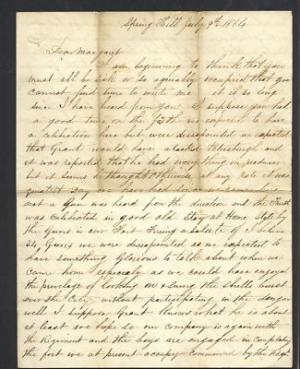 Spring Hill July 9th 1864
Dear Margaret
I am beginning to think that you
must all be sick or so agreably occupied that you
cannot find time to write me it is so long
since I have heard from you I suppose you had
a good time on the 4th we expected to have
a celebration here but were dissapointed we expected
that Grant would have attacked Petersburgh and
it was reported that he had everything in readiness
but it seems he thought otherwise at any rate it was
quietest day we have had for
not a Gun was heard for the duration and the Fourth
was Celebrated in good old Stay at Home Style by
the Guns in our Fort Firing a Salute of I believe
34 Guns we were dissapointed as we expected to
have something Glorious to talk about when we
came home especialy as we could have enjoyed
the privelage of looking on & seeing the Shells burst
over the City without participating in the danger
well I suppose Grant knows what he is about
at least we hope so our company is again with
the Regiment and the boys are engaged in completing
the fort we at present occupy commanded by the